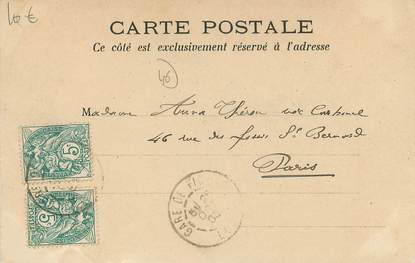 10 €
CARTE POSTALE
Ce côté est exclusivement réservé à l'adresse
46
Madame Anna Théron
46 rue des Fossés St Bernard
Paris
5
5
GARE DE